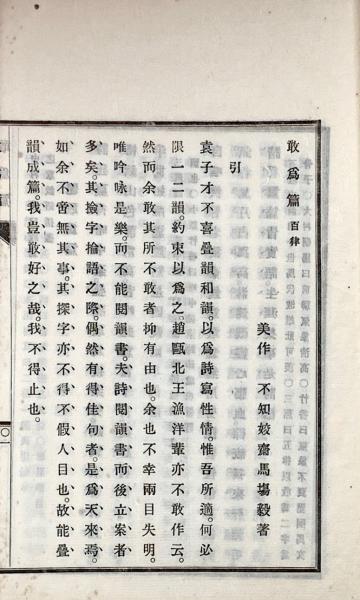 敢爲篇 百律
美作 不知姣齋馬場毅著
引
袁子才不喜疊韻和韻。以爲詩寫性情。惟吾所適。何必
限一二韻。約束以爲之。趙甌北王漁洋輩亦不敢作云。
然而余敢其所不敢者抑有由也。余也不幸兩目失明。
唯吟咏是樂。而不能閱韻書。夫詩閱韻書而後立案者
多矣。其撿字搶語之際。偶然有得佳句者。是爲天來焉。
如余不啻無其事。其探字亦不得不假人目也。故能疊
韻成篇。我豈敢好之哉。我不得止也。